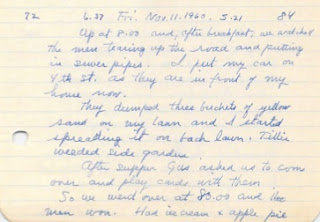 72 6.37 Fri. Nov. 11. 1960. 5.21 84
Up at 8.00 and, after breakfast, we watched
the men tearing up the road and putting
in sewer pipes. I put my car on
4th st. as they are in front of my
house now.
They dumped three buckets of yellow
sand on my lawn and I started
spreading it on back lawn. Tillie
weeded side garden.
After supper Gus asked us to come
over and play cards with them.
So we went over at 8.00 and the
men won. Had ice cream & apple pie